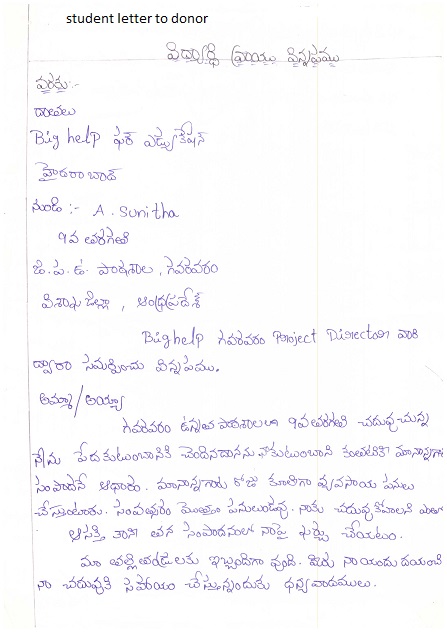 student letter to donor
విద్యార్థి వ్రాయు విన్నపము
వరకు:-
దాతలు
Big help ఫర్ ఎడ్యుకేషన్
హైదరాబాద్
నుండి :- A. Sunitha
9వ తరగతి
జి. ప. ఉ. పాఠశాల, గవరవరం
విశాఖ జిల్లా, ఆంధ్రప్రదేశ్
Big help గవరవరం Project Director వారి
ద్వారా సమర్పించు విన్నపము.
అమ్మా/అయ్యా
గవరవరం ఉన్నత పాఠశాలలో 9వ తరగతి చదువుచున్న
నేను పేదకుటుంబానికి చెందినదానను నాకుటుంబాని కంతటికి మానాన్నగా
సంపాదనే ఆధారం. మానాన్నగారు రోజు కూలిగా వ్యవసాయ పనులు
చేస్తుంటారు. సంవత్సరం మొత్తం పనులుండవు. నాకు చదువుకోవాలని ఎంతో
ఆసక్తి కాని తన సంపాదనలో నాపై ఖర్చు చేయటం
మా తల్లితండ్రులకు ఇబ్బందిగా వుంది. మీరు నాయందు దయంచి
నా చదువుకి సహాయం చేస్తున్నందుకు ధన్యవాదములు.